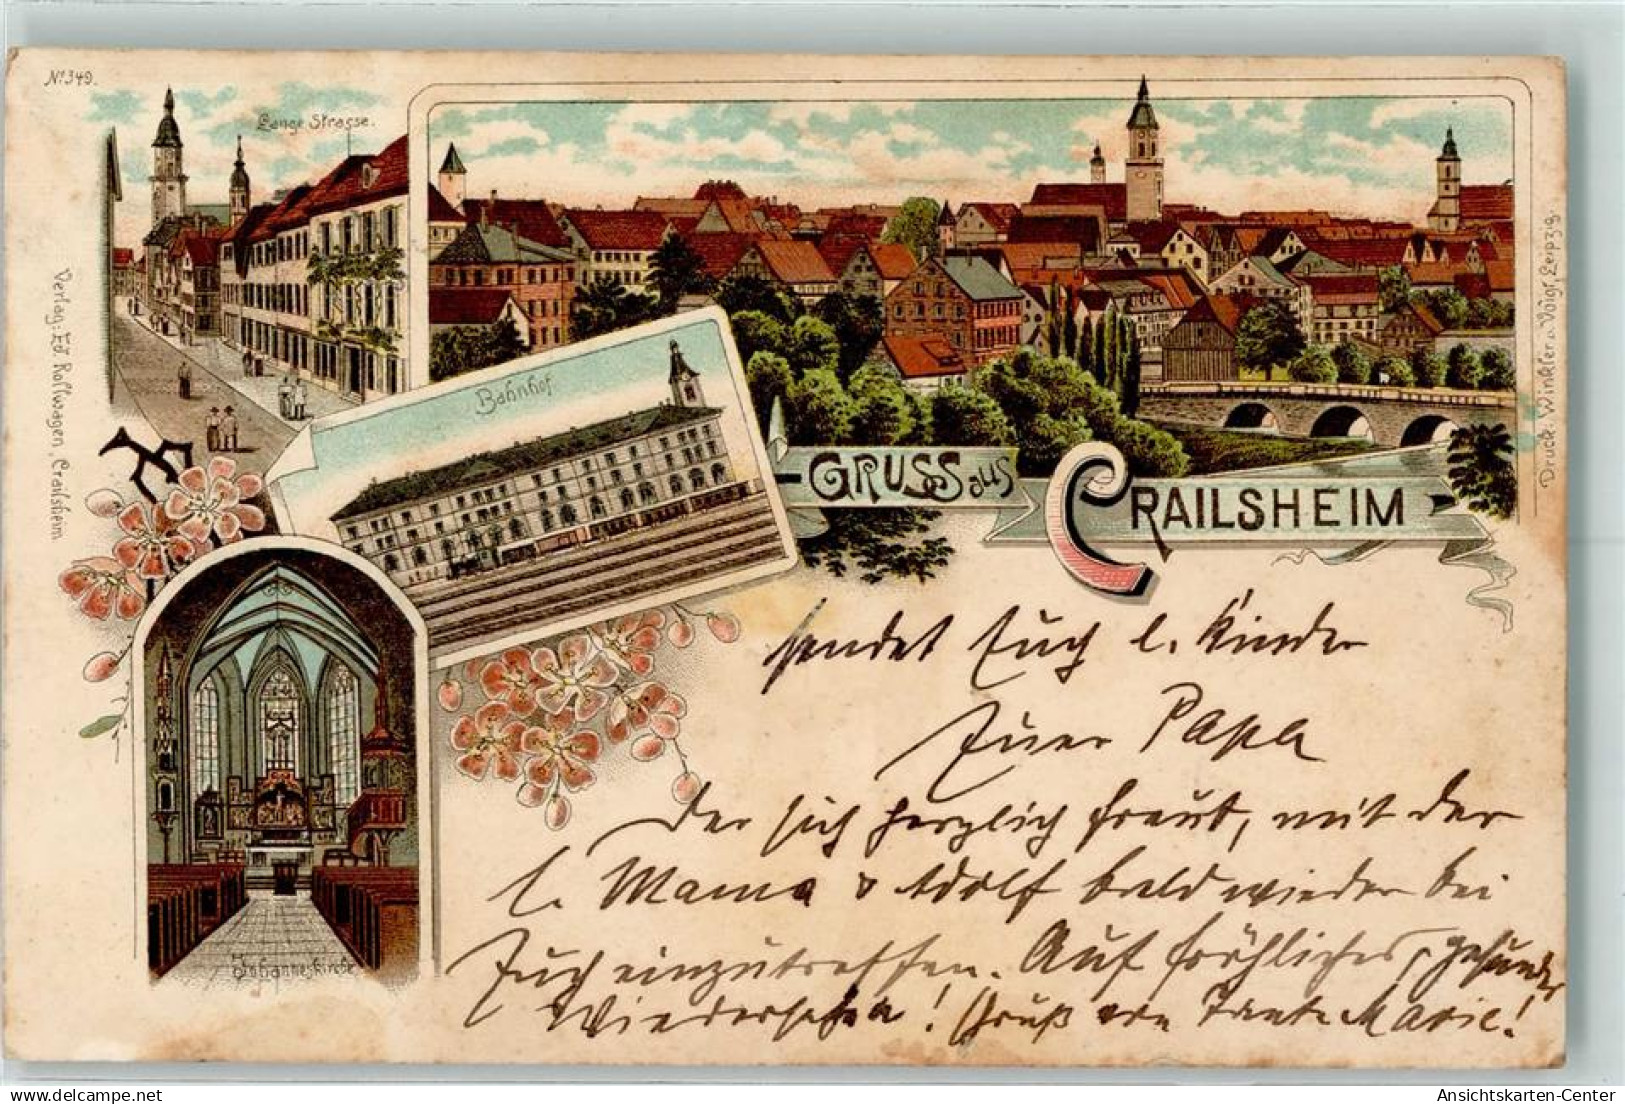 No 349.
Lange Strasse.
Verlag: Ed. Rollwagen, Crailsheim
Bahnhof
GRUSS aus
CRAILSHEIM
Druck. Winkler u. Voigt, Leipzig.
Johanneskirche
sendet Euch l. Kinder
Euer Papa
der sich herzlich freut, mit der
l. Mama & Adolf bald wieder bei
Euch einzutreffen. Auf fröhliches, gesundes
Wiedersehen! Gruß von Tante Marie!
Ansichtskarten-Center